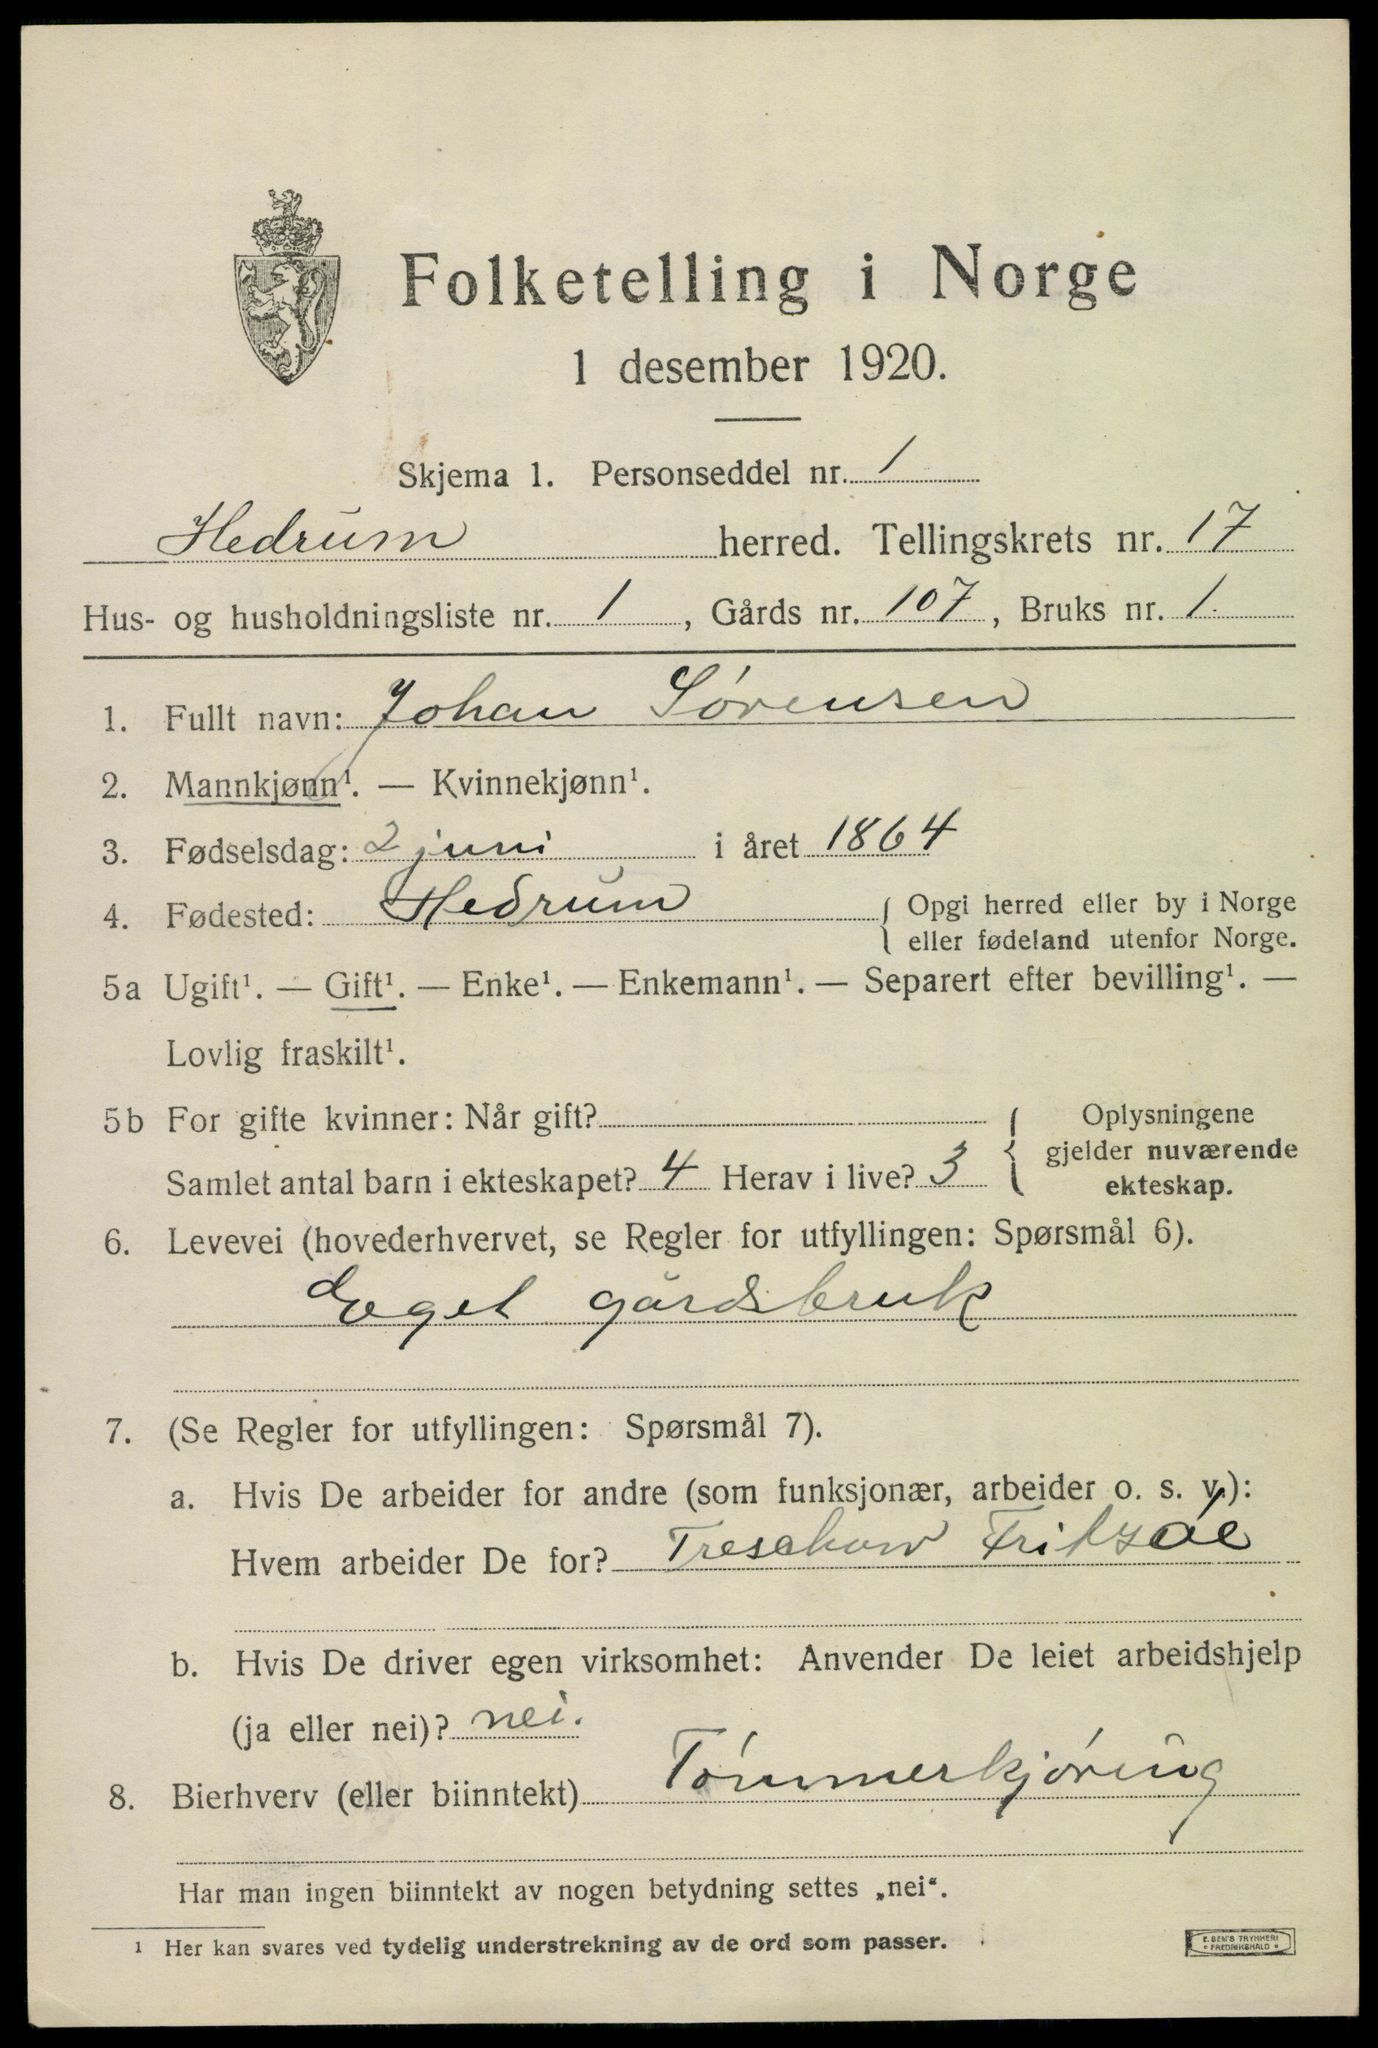 Folketelling i Norge
1 desember 1920.
Skjema 1. Personseddel nr. 1
Hedrum herred. Tellingskrets nr. 17
Hus- og husholdningsliste nr. 1, Gårds nr. 107, Bruks nr. 1.
1. Fullt navn: Johan Sørensen
2. Mannkjønn¹. — Kvinnekjønn¹.
3. Fødselsdag: 2 juni i året 1864
4. Fødested: Hedrum { Opgi herred eller by i Norge
eller fødeland utenfor Norge.
5a Ugift¹. — Gift¹. — Enke¹. — Enkemann¹. — Separert efter bevilling¹. —
Lovlig fraskilt¹.
5b For gifte kvinner: Når gift? { Oplysningene
gjelder nuværende
Samlet antal barn i ekteskapet? 4 Herav i live? 3 ekteskap.
6. Levevei (hovederhvervet, se Regler for utfyllingen: Spørsmål 6).
Eget gårdsbruk
7. (Se Regler for utfyllingen: Spørsmål 7).
a. Hvis De arbeider for andre (som funksjonær, arbeider o. s. v.):
Hvem arbeider De for? Treschow Fritzøe
b. Hvis De driver egen virksomhet: Anvender De leiet arbeidshjelp
(ja eller nei)? nei.
8. Bierhverv (eller biinntekt) Tømmerkjøring
Har man ingen biinntekt av nogen betydning settes „nei“.
¹ Her kan svares ved tydelig understrekning av de ord som passer.
E. SEM'S TRYKKERI
• FREDRIKSHALD •